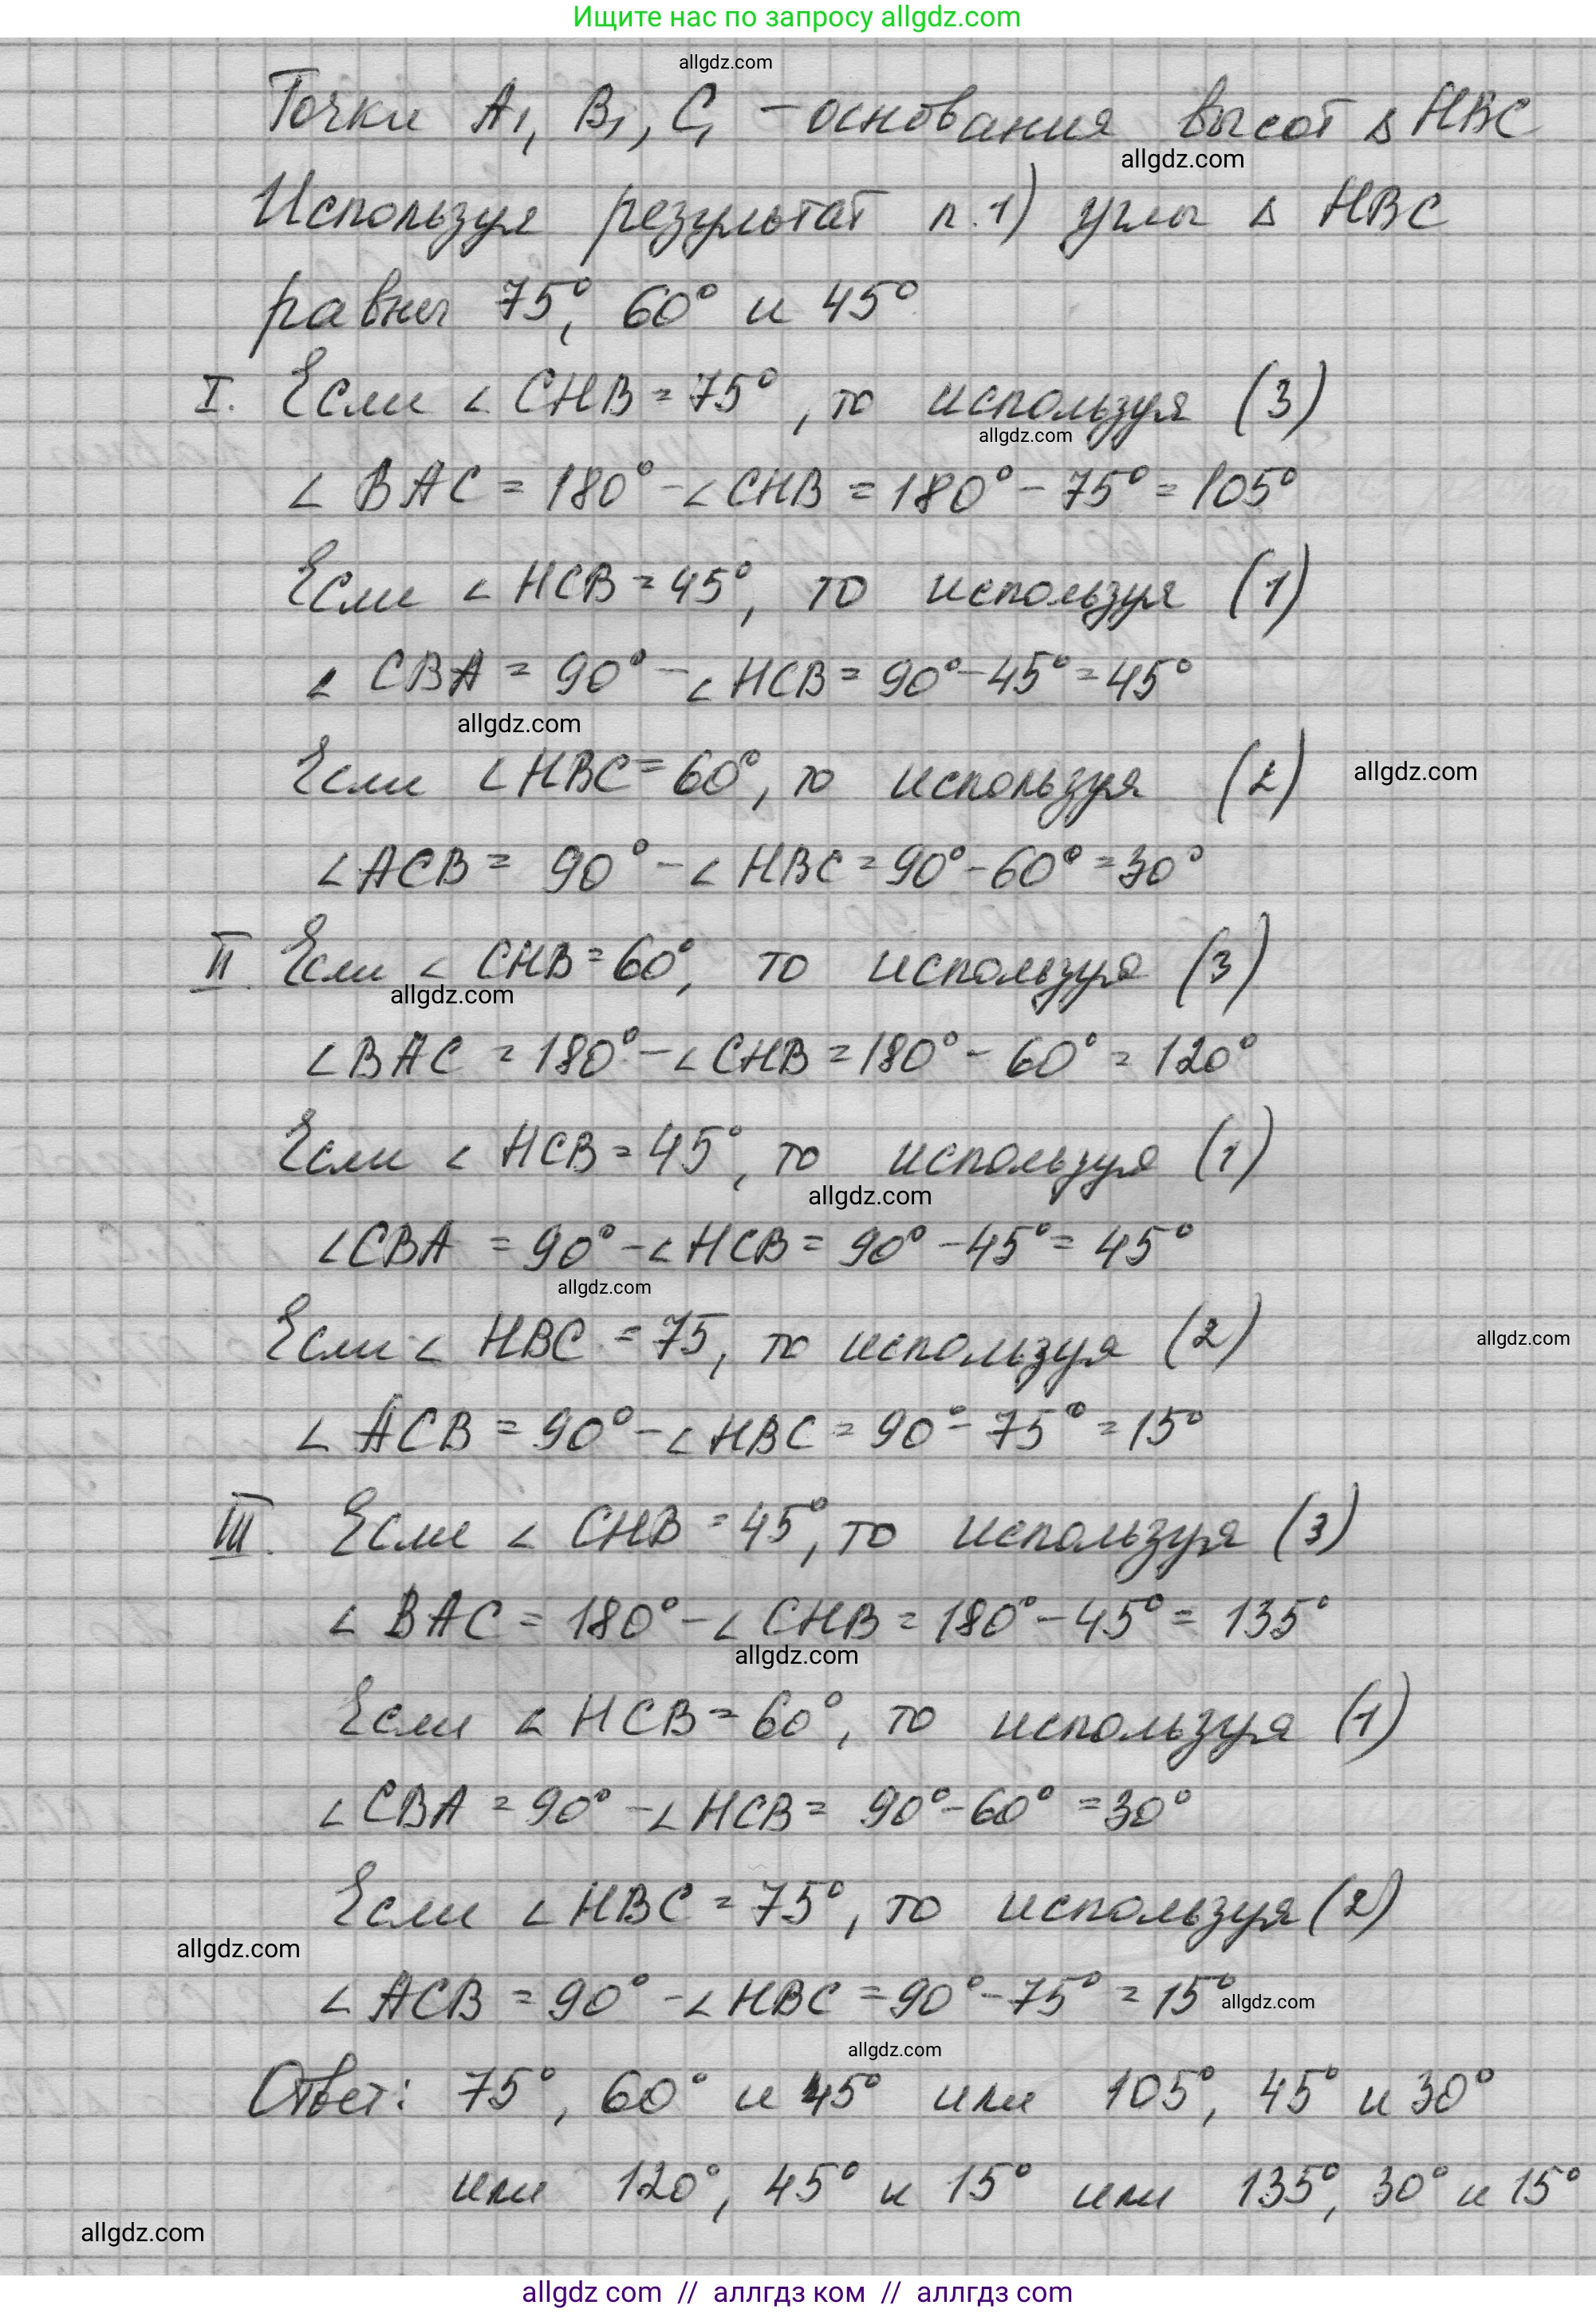 Ищите нас по запросу allgdz.com
allgdz.com
Точки A₁, B₁, C₁ – основания высот Δ HBC
allgdz.com
Используя результат п.1) углы Δ HBC
равны 75°, 60° и 45°
I. Если ∠ CHB = 75°, то используя (3)
allgdz.com
∠ BAC = 180° – ∠ CHB = 180° – 75° = 105°
Если ∠ HCB = 45°, то используя (1)
∠ CBA = 90° – ∠ HCB = 90° – 45° = 45°
allgdz.com
Если ∠ HBC = 60°, то используя (2) allgdz.com
∠ ACB = 90° – ∠ HBC = 90° – 60° = 30°
II. Если ∠ CHB = 60°, то используя (3)
allgdz.com
∠ BAC = 180° – ∠ CHB = 180° – 60° = 120°
Если ∠ HCB = 45°, то используя (1)
allgdz.com
∠ CBA = 90° – ∠ HCB = 90° – 45° = 45°
allgdz.com
Если ∠ HBC = 75, то используя (2) allgdz.com
∠ ACB = 90° – ∠ HBC = 90° – 75° = 15°
III. Если ∠ CHB = 45°, то используя (3)
∠ BAC = 180° – ∠ CHB = 180° – 45° = 135°
allgdz.com
Если ∠ HCB = 60°, то используя (1)
∠ CBA = 90° – ∠ HCB = 90° – 60° = 30°
Если ∠ HBC = 75°, то используя (2)
allgdz.com
∠ ACB = 90° – ∠ HBC = 90° – 75° = 15° allgdz.com
allgdz.com
Ответ: 75°, 60° и 45° или 105°, 45° и 30°
или 120°, 45° и 15° или 135°, 30° и 15°
allgdz.com
allgdz com // аллгдз ком // аллгдз com